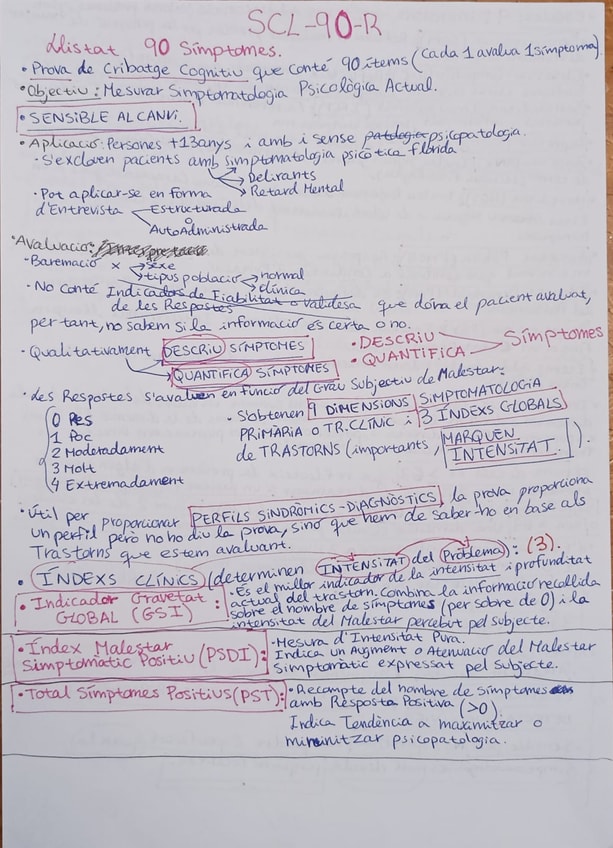 SCL-90-R
Llistat 90 Símptomes.
• Prova de Cribatge Cognitiu que conté 90 ítems (Cada 1 avalua 1 símptoma)
• Objectiu: Mesurar Simptomatologia Psicològica Actual.
• SENSIBLE AL CANVI.
• Aplicació: Persones +13anys i amb i sense patologia psicopatologia.
- S'excloven pacients amb simptomatologia psicòtica florida
Delirants
Retard Mental
• Pot aplicar-se en forma
d'Entrevista Estructurada
o
AutoAdministrada
• Avaluació:
- Baremació x sexe
tipus població normal
clínica
- No conté Indicadors de Fiabilitat o Validesa que dóna el pacient avaluat,
de les Respostes
per tant, no sabem si la informació és certa o no.
• Qualitativament DESCRIU SÍMPTOMES
QUANTIFICA SÍMPTOMES
• DESCRIU
• QUANTIFICA
Símptomes
• Les Respostes s'avaluen en funció del Grau Subjectiu de Malestar:
0 Res
1 Poc
2 Moderadament
3 Molt
4 Extremadament
• S'obtenen 9 DIMENSIONS SIMPTOMATOLOGIA
PRIMÀRIA O TR.CLÍNIC i 3 ÍNDEXS GLOBALS
de TRASTORNS (importants, MARQUEN
INTENSITAT.).
• Útil per proporcionar PERFILS SINDRÒMICS-DIAGNÒSTICS, la prova proporciona
un perfil però no ho diu la prova, sino que hem de saber-ho en base als
Trastorns que estem avaluant.
• ÍNDEXS CLÍNICS (determinen INTENSITAT del Problema): (3).
• Indicador Gravetat
GLOBAL (GSI) :
• És el millor indicador de la intensitat i profunditat
actual del trastorn. Combina la informació recollida
sobre el nombre de símptomes (per sobre de 0) i la
intensitat del Malestar percebut pel subjecte.
• Índex Malestar
Simptomàtic Positiu (PSDI):
• Mesura d'Intensitat Pura.
Indica un Augment o Atenuació del Malestar
Simptomàtic expressat pel Subjecte.
• Total Símptomes Positius (PST):
• Recompte del nombre de símptomes
amb Resposta Positiva (>0)
Indica Tendència a maximitzar o
minimitzar psicopatologia.